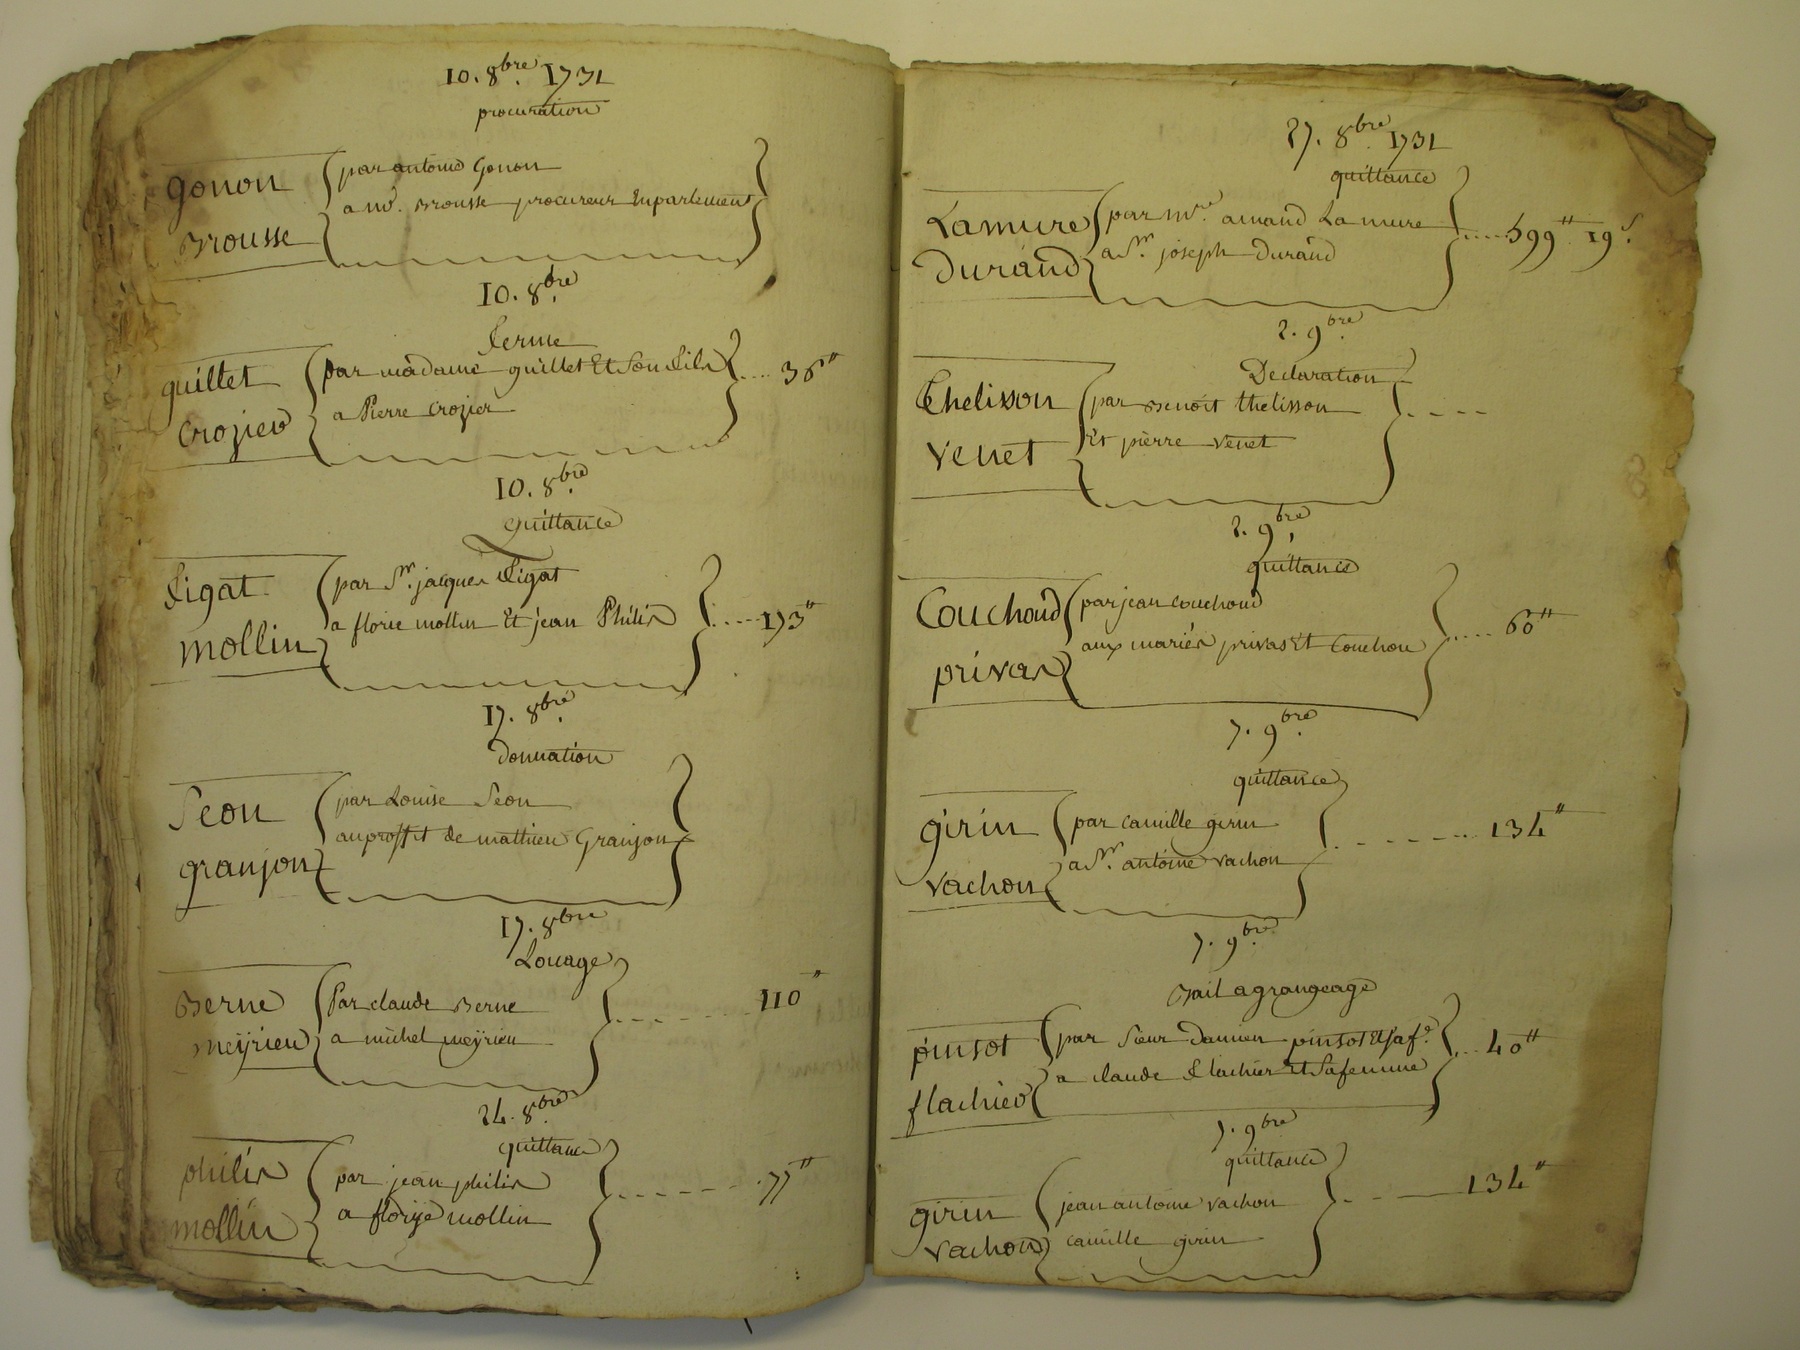 10. 8bre. 1731
procuration
gonon
Brousse
par antoine Gonon
a Me. Brousse procureur Enparlement
10. 8bre.
ferme
guillet
Crozier
par madame guillet Et Son fils
a Pierre Crozier
36"
10. 8bre.
quittance
figat
mollin
par Sr. jacques figat
a florie mollin Et jean Philis
193"
17. 8bre.
donnation
Seon
granjon
par Louise Seon
auproffit de mathieu Granjon
17. 8bre
Louage
Berne
meÿrieu
Par claude Berne
a michel meÿrieu
110"
24. 8bre.
quittance
philis
mollin
par jean philis
a florije mollin
77"
27. 8bre. 1731
quittance
Lamure
Durand
par mre. amand Lamure
a Sr. joseph Durand
599" 19s.
2. 9bre.
Declaration
Thelisson
Venet
par Benoit thelisson
Et pierre Venet
2. 9bre.
quittance
Couchoud
privas
par jean couchoud
aux mariés privas Et Couchou
60"
7. 9bre.
quittance
girin
vachon
par camille girin
a Sr. antoine vachon
134"
7. 9bre.
Bail agrangeage
pinsot
flachier
par Sieur Damien pinsot Et saf.e
a claude flachier Et Safemme
40"
7. 9bre
quittance
girin
vachon
jean antoine vachon
camille girin
134"